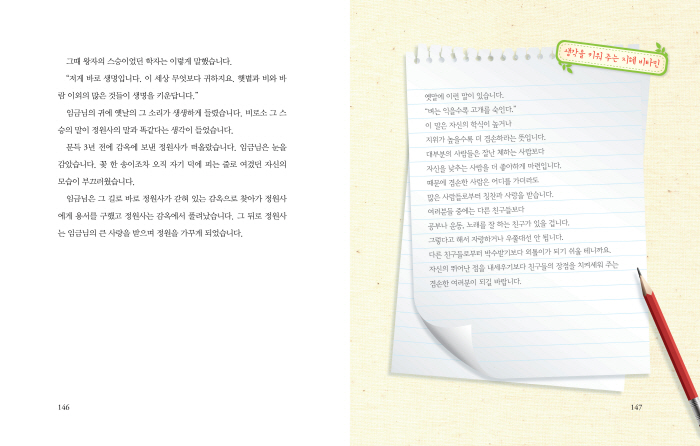 그때 왕자의 스승이었던 학자는 이렇게 말했습니다.
“저게 바로 생명입니다. 이 세상 무엇보다 귀하지요. 햇볕과 비와 바
람 이외의 많은 것들이 생명을 키운답니다.”
임금님의 귀에 옛날의 그 소리가 생생하게 들렸습니다. 비로소 그 스
승의 말이 정원사의 말과 똑같다는 생각이 들었습니다.
문득 3년 전에 감옥에 보낸 정원사가 떠올랐습니다. 임금님은 눈을
감았습니다. 꽃 한 송이조차 오직 자기 덕에 피는 줄로 여겼던 자신의
모습이 부끄러웠습니다.
임금님은 그 길로 바로 정원사가 갇혀 있는 감옥으로 찾아가 정원사
에게 용서를 구했고 정원사는 감옥에서 풀려났습니다. 그 뒤로 정원사
는 임금님의 큰 사랑을 받으며 정원을 가꾸게 되었습니다.
146
생각을 키워 주는 지혜 비타민
옛말에 이런 말이 있습니다.
“벼는 익을수록 고개를 숙인다.”
이 말은 자신의 학식이 높거나
지위가 높을수록 더 겸손하라는 뜻입니다.
대부분의 사람들은 잘난 체하는 사람보다
자신을 낮추는 사람을 더 좋아하게 마련입니다.
때문에 겸손한 사람은 어디를 가더라도
많은 사람들로부터 칭찬과 사랑을 받습니다.
여러분들 중에는 다른 친구들보다
공부나 운동, 노래를 잘 하는 친구가 있을 겁니다.
그렇다고 해서 자랑하거나 우쭐대선 안 됩니다.
다른 친구들로부터 박수받기보다 외톨이가 되기 쉬울 테니까요.
자신의 뛰어난 점을 내세우기보다 친구들의 장점을 치켜세워 주는
겸손한 여러분이 되길 바랍니다.
147